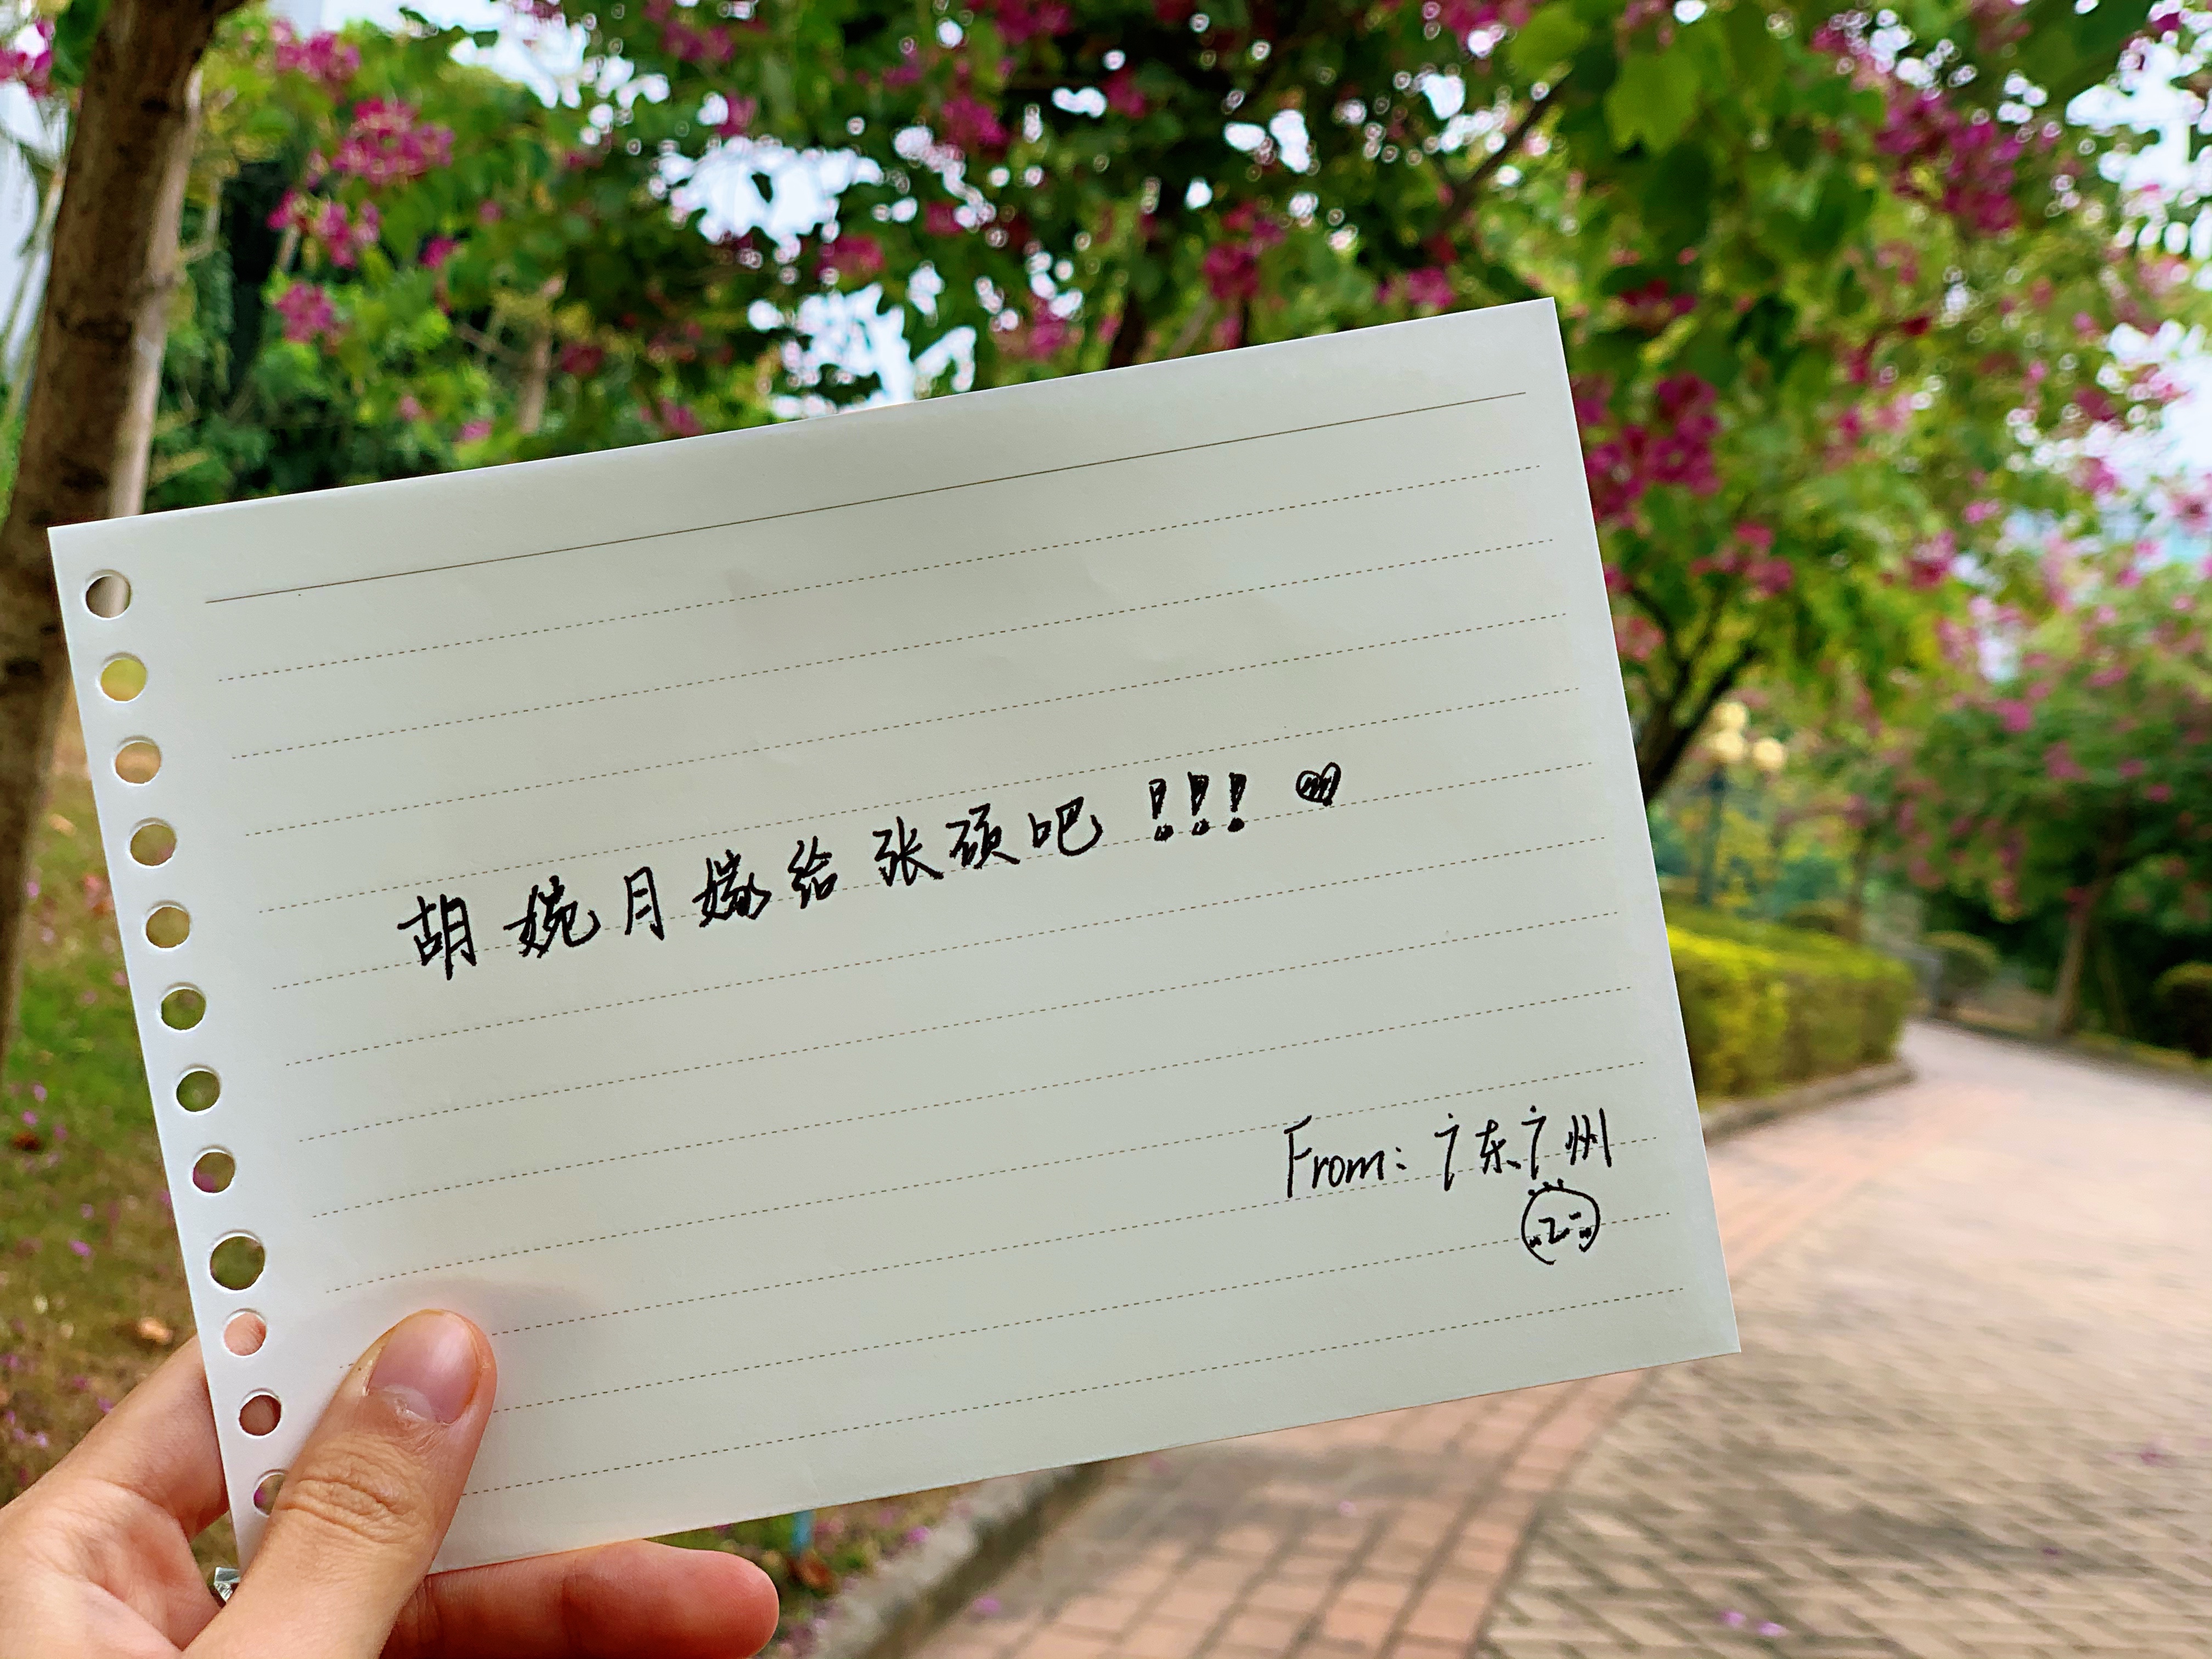 胡婉月嫁给张硕吧!!!
From: 广东广州